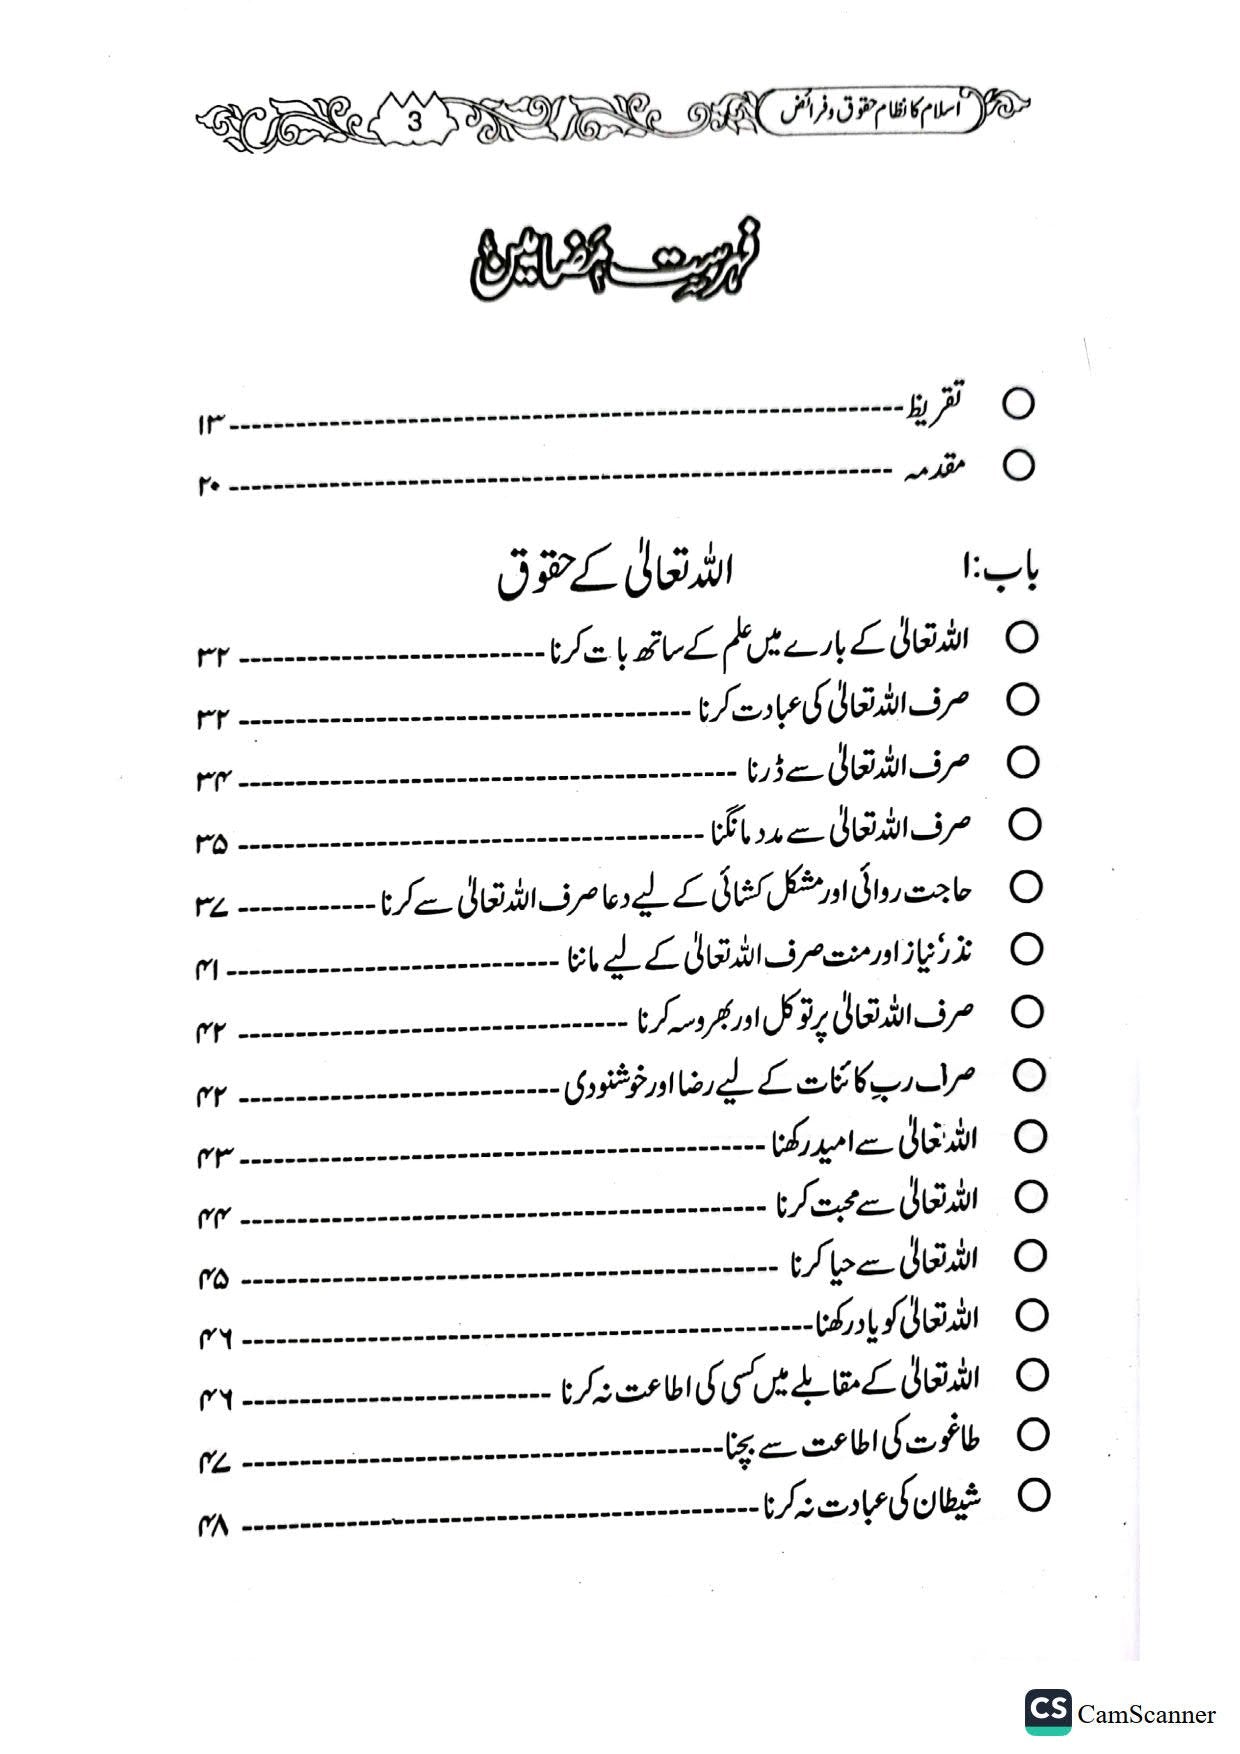 اسلام کا نظام حقوق و فرائض
3
فہرست مضامین
تقریظ ۱۳
مقدمہ ۲۰
باب:۱ اللہ تعالیٰ کے حقوق
اللہ تعالیٰ کے بارے میں علم کے ساتھ بات کرنا ۳۲
صرف اللہ تعالیٰ کی عبادت کرنا ۳۲
صرف اللہ تعالیٰ سے ڈرنا ۳۴
صرف اللہ تعالیٰ سے مدد مانگنا ۳۵
حاجت روائی اور مشکل کشائی کے لیے دعا صرف اللہ تعالیٰ سے کرنا ۳۷
نذر نیاز اور منت صرف اللہ تعالیٰ کے لیے ماننا ۴۱
صرف اللہ تعالیٰ پر توکل اور بھروسہ کرنا ۴۲
رب کائنات کے لیے رضا اور خوشنودی ۴۲
اللہ تعالیٰ سے امید رکھنا ۴۳
اللہ تعالیٰ سے محبت کرنا ۴۴
اللہ تعالیٰ سے حیا کرنا ۴۵
اللہ تعالیٰ کو یاد رکھنا ۴۶
اللہ تعالیٰ کے مقابلے میں کسی کی اطاعت نہ کرنا ۴۶
طاغوت کی اطاعت سے بچنا ۴۷
شیطان کی عبادت نہ کرنا ۴۸
CS CamScanner